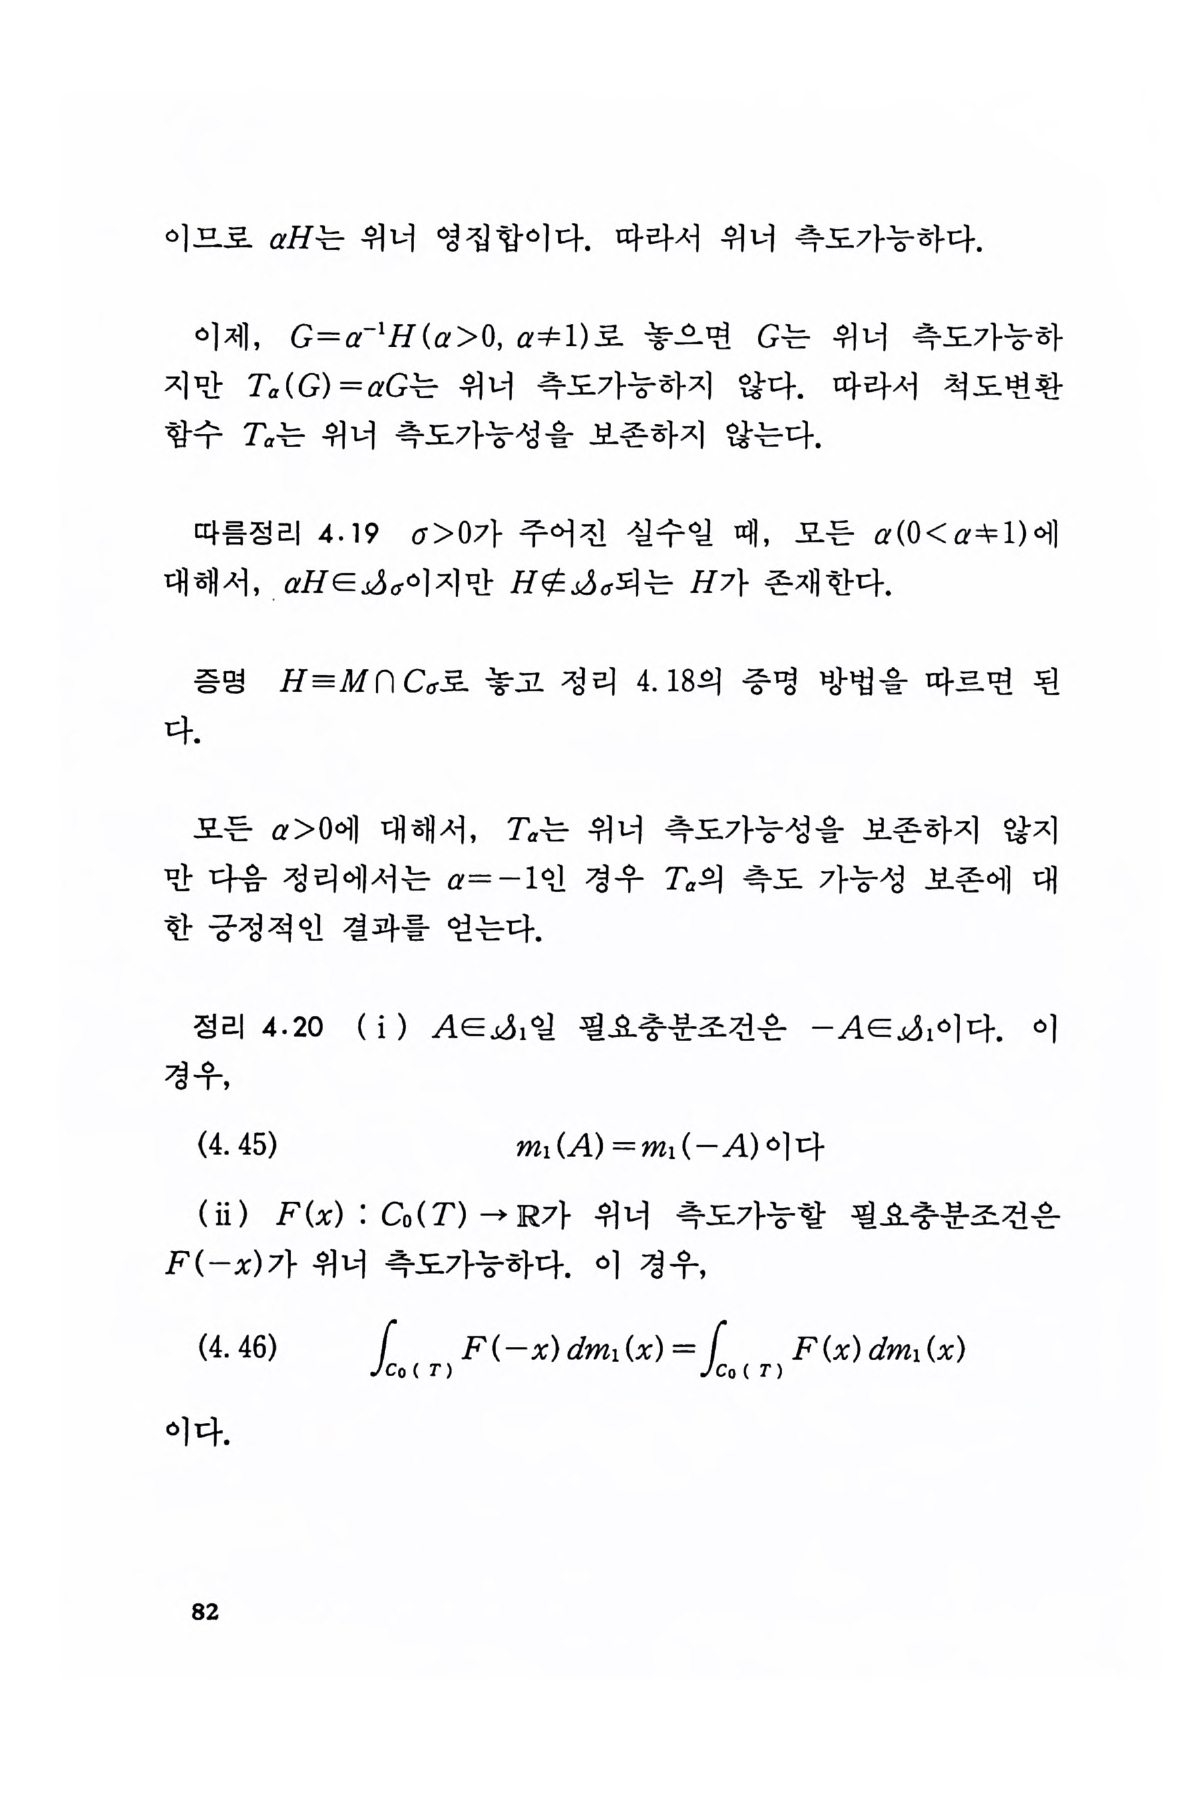 이므로 αH는 위너 영집합이다. 따라서 위너 측도가능하다.
이제, G=α⁻¹H(α>0, α≠1)로 놓으면 G는 위너 측도가능하
지만 Tα(G)=αG는 위너 측도가능하지 않다. 따라서 척도변환
함수 Tα는 위너 측도가능성을 보존하지 않는다.
따름정리 4.19 σ>0가 주어진 실수일 때, 모든 α(0<α≠1)에
대해서, αH∈𝒮σ이지만 H∉𝒮σ되는 H가 존재한다.
증명 H≡M∩Cσ로 놓고 정리 4.18의 증명 방법을 따르면 된
다.
모든 α>0에 대해서, Tα는 위너 측도가능성을 보존하지 않지
만 다음 정리에서는 α=−1인 경우 Tα의 측도 가능성 보존에 대
한 긍정적인 결과를 얻는다.
정리 4.20 (i) A∈𝒮₁일 필요충분조건은 −A∈𝒮₁이다. 이
경우,
(4.45) m₁(A)=m₁(−A)이다
(ii) F(x) : C₀(T)→ℝ가 위너 측도가능할 필요충분조건은
F(−x)가 위너 측도가능하다. 이 경우,
(4.46) ∫C₀(T) F(−x)dm₁(x)=∫C₀(T) F(x)dm₁(x)
이다.
82